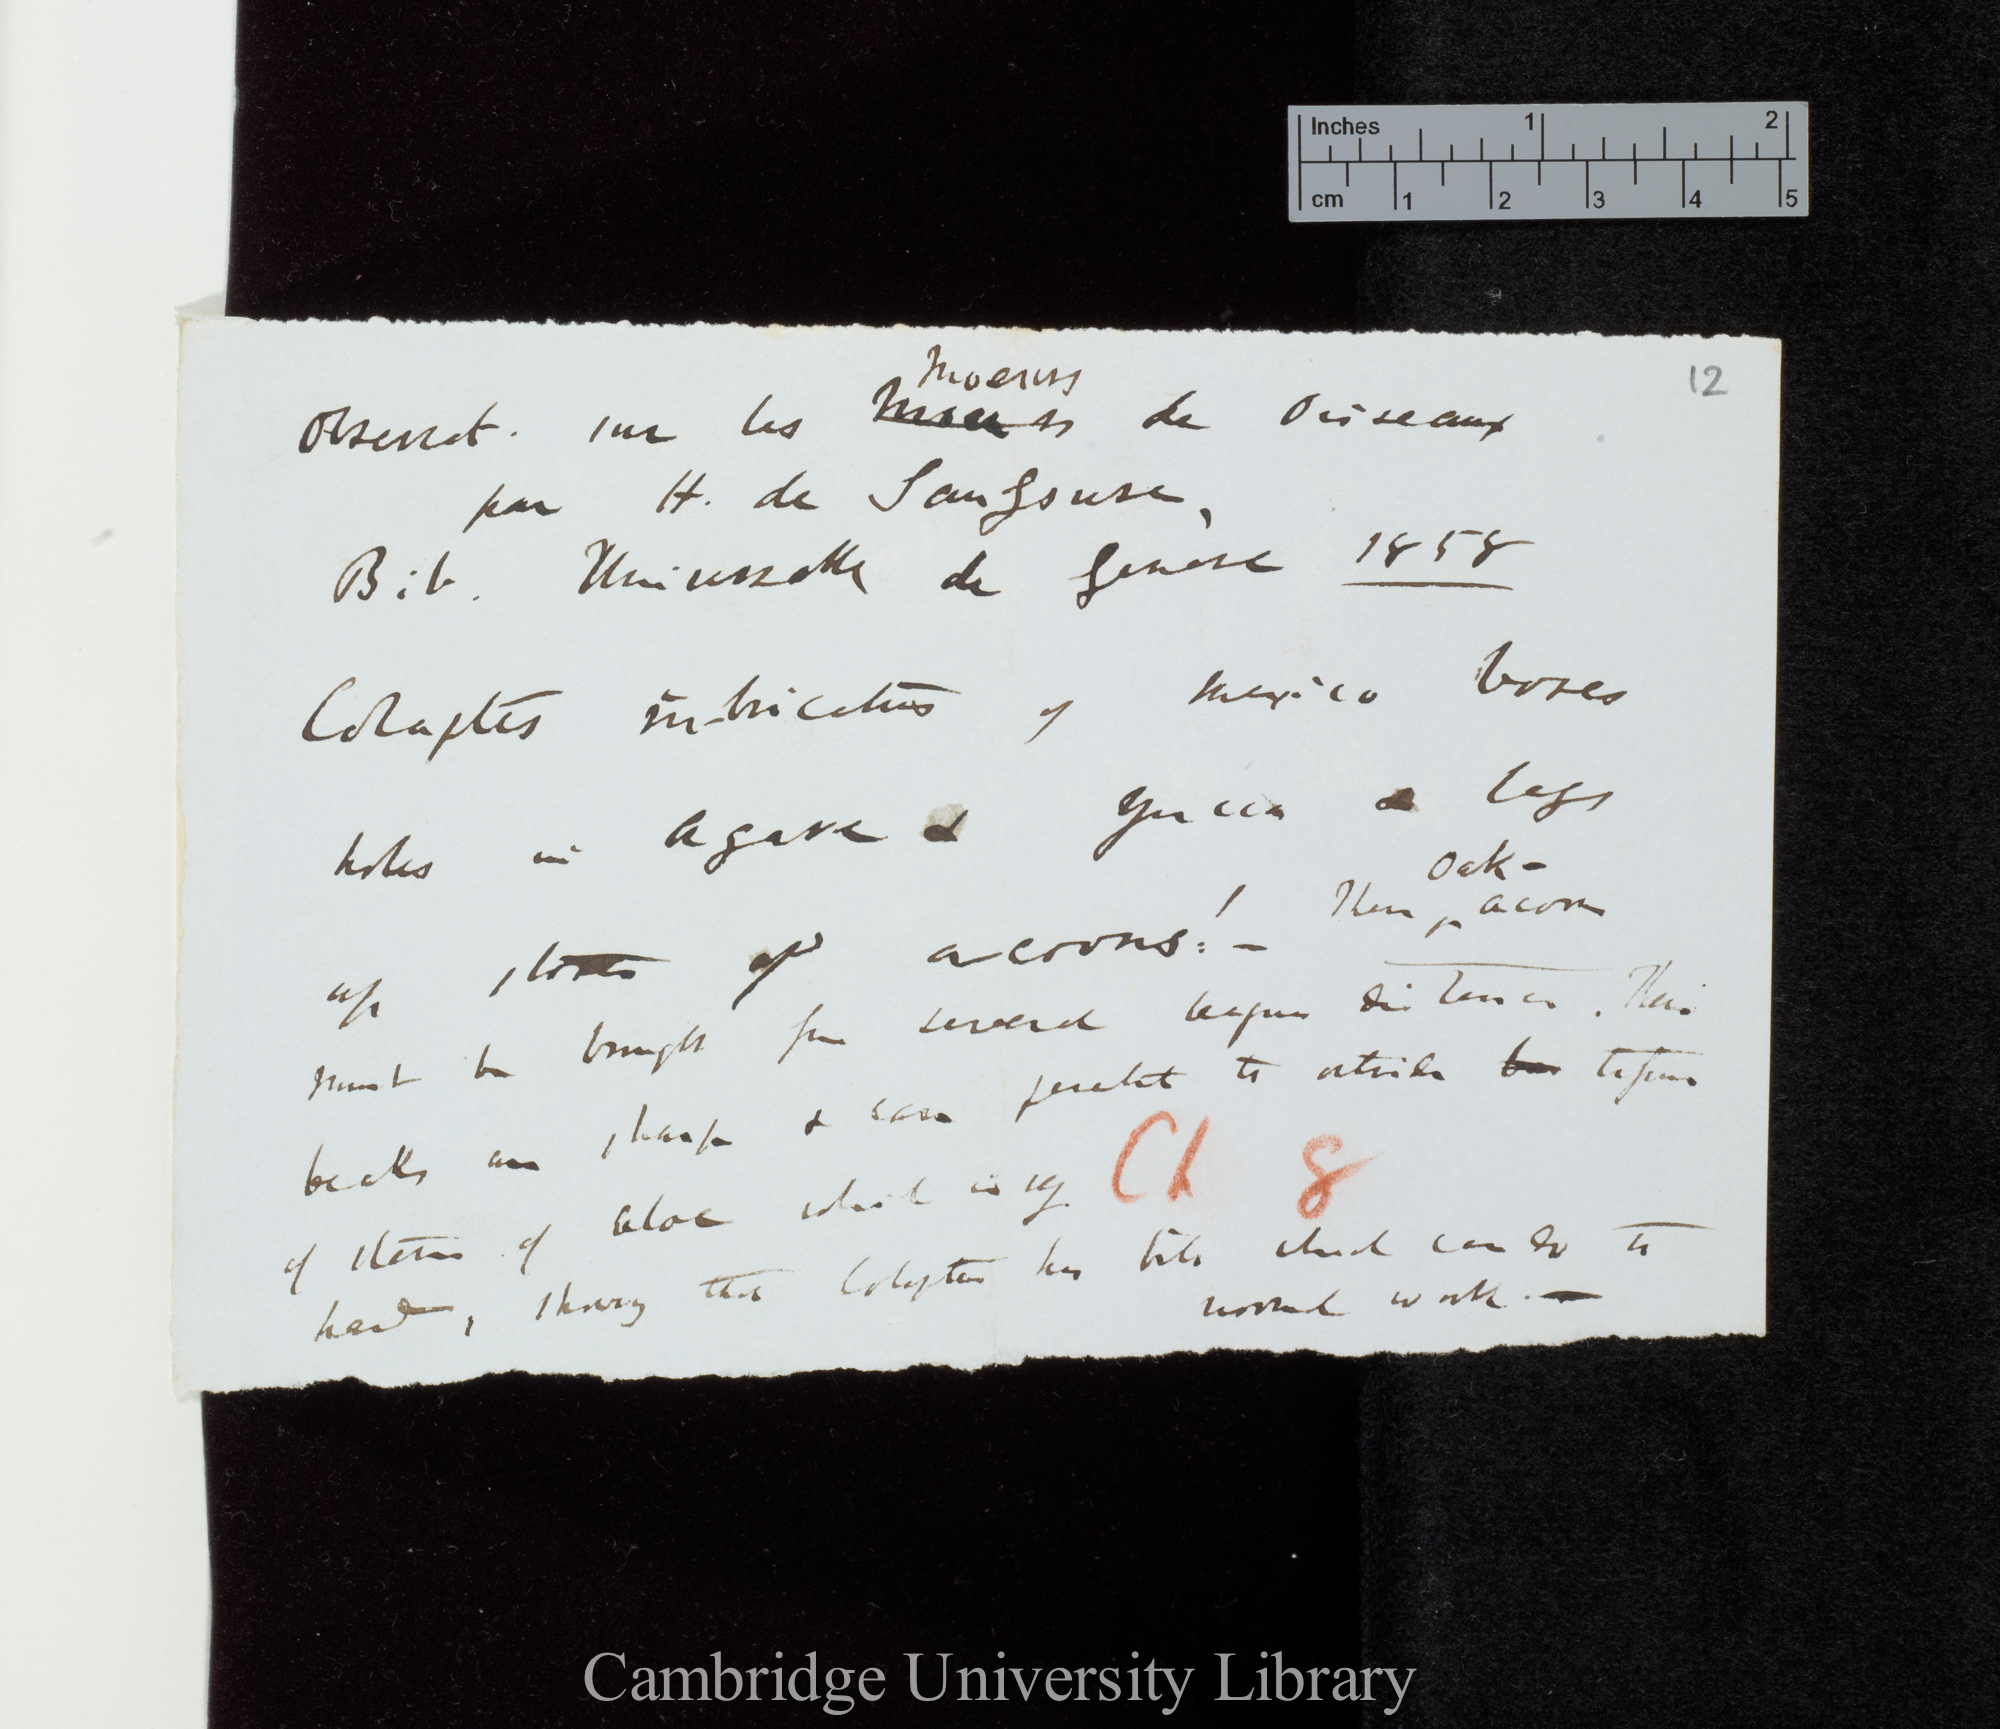 Inches 1 2
cm 1 2 3 4 5
12
Moeurs
Observat. sur les Moeurs de Oiseaux
par H. de Saussure,
Bib. Universelle de Geneve 1858
Colaptes rubricatus of Mexico bores
holes in Agave & Yucca & lays
Oak-
up stores of acorns! — These acorns
must be brought from several leagues distance. Their
beaks are sharp & can penetrate outside
of stems of aloe which is
Ch 8
hard, showing that Colaptes has bill which can do
normal work. —
Cambridge University Library